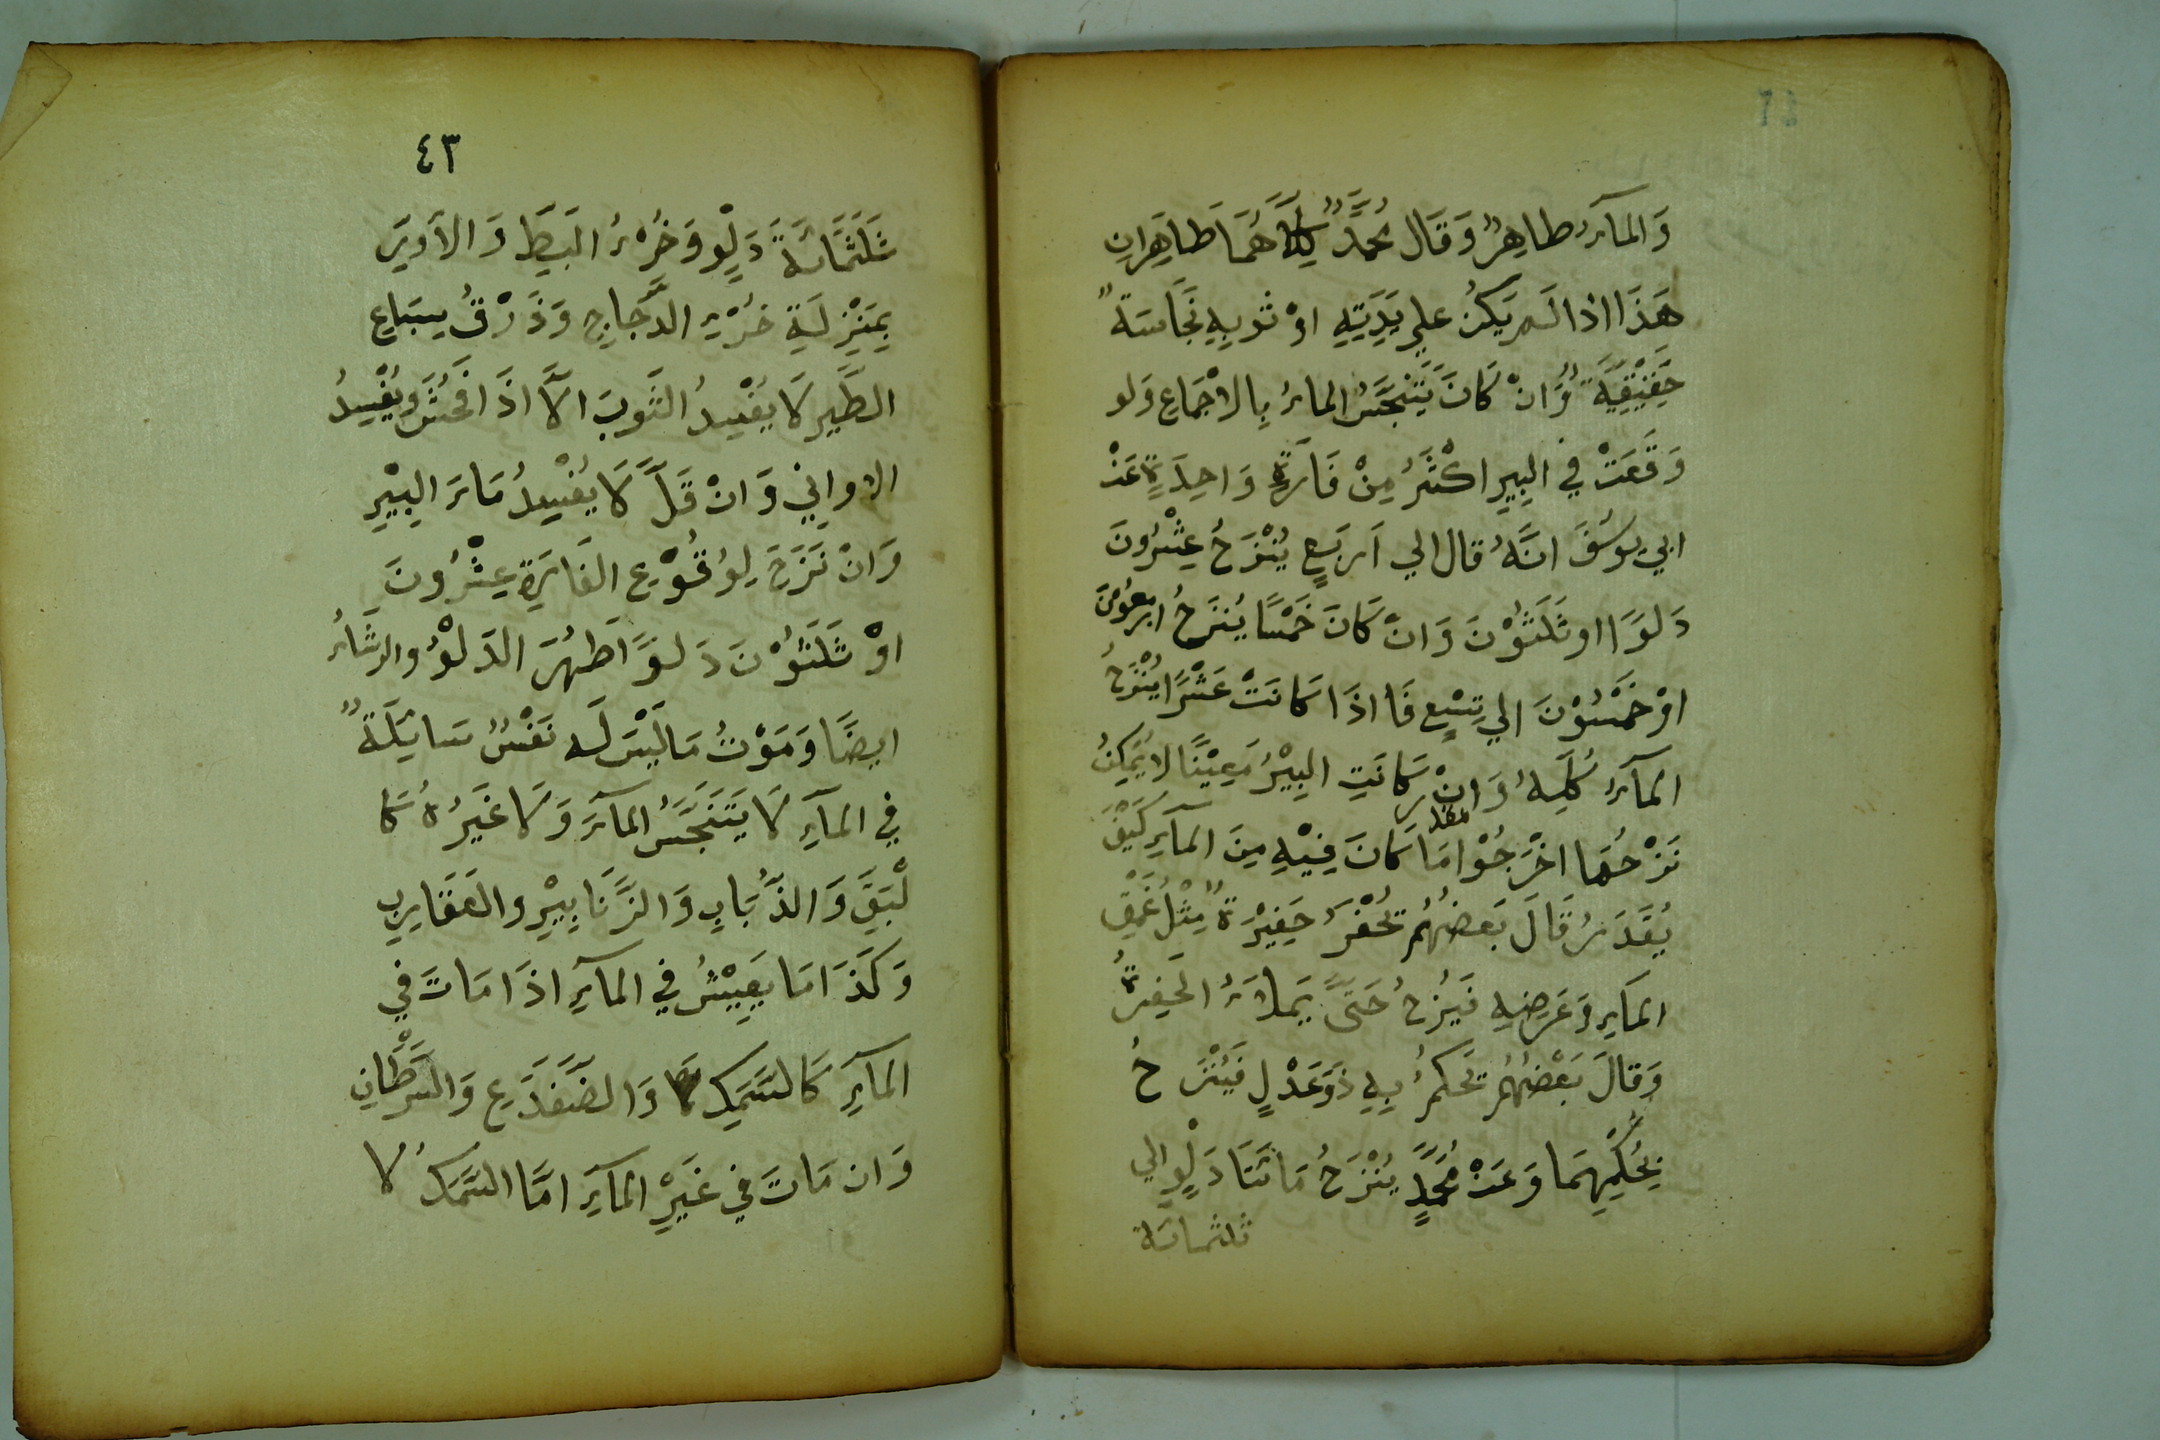 وَالمآءُ طاهِرٌ وَقَال مُحمَّدٌ كِلَاهُمَا طَاهِرَانِ
هَذَا اذا لم يَكُنْ علي بَدَنِهِ اوْ ثوبِهِ نَجَاسَةٌ
حَقِيْقِيَّةٌ وَانْ كَانَ يَتَنَجَّسُ الماءُ بِالاجْمَاعِ وَلو
وَقَعَتْ في البِيرِ اكْثَرُ مِنْ فَارَةٍ وَاحِدَةٍ عَنْ
ابي يوسُفَ انَّهُ قال الي اَربَعٍ يُنْزَحُ عِشْرُونَ
دَلوًا او ثَلَثوْنَ وَانْ كَانَ خَمْسًا يُنزَحُ اربعُوْنَ
اوْ خَمْسُوْنَ الي تِسْعٍ فَا اذَا كَانَتْ عَشْرًا يُنْزَحُ
المآءُ كُلُّهُ وَانْ كَانَتِ البِيْرُ مَعِيْنًا لا يُمْكِنُ
نَزْحُها اخْرَجُوْا مقدار مَا كَانَ فِيْهِ مِنَ المآءِ كَيْفَ
يُقَدَرُ قَالَ بَعضُهُم تُحْفَرُ حَفِيْرَةٌ مِثْلُ عُمْقِ
المَاءِ وَعَرضِهِ فَيُزحُ حَتّىَ يَملاَءُ الحَفِرةُ
وَقالَ بَعْضُهُمْ يَحكُمُ بِهِ ذَوَعَدْلٍ فَيُنْزَحُ
بِحُكْمِهِمَا وَعَنْ مُحَمَّدٍ يُنْزَحُ مَائتَا دَلْوٍ الي
ثلثمائة
٤٣
ثَلَثَمَائَةَ دَلْوٍ وَخُرْءُ البَطِّ وَالاَوِزِّ
بِمَنْزِلَةِ خُرْءِ الدَّجَاجِ وَذَرْقُ سِبَاعِ
الطَّيرِ لَا يُفْسِدُ الثَوبَ الَّا اذَا فَحُشَ وَيُفْسِدُ
الاوانِي وَانْ قَلَّ لَا يُفْسِدُ مَاءَ البِيْرِ
وَانْ نَزَحَ لِوُقُوْعِ الفَارَةِ عِشْرُونَ
اوْ ثَلَثُوْنَ دَلوًا طَهُرَ الدَلْوُ والرشَاءُ
ايضًا وَمَوْتُ مَا لَيْسَ لَه نَفْسٌ سَايِلَةٌ
في المآءِ لَا يَتَنَجَّسُ المآءَ وَلَا غَيرُهُ كَا
لْبَقِّ وَالذُّبَابِ وَالزَّنَابِيْرِ والعَقَارِبِ
وَكَذَا مَا يَعِيْشُ في المآءِ اذَا مَاتَ في
المآءِ كَالسَّمَكِ وَالضِفْدَعِ وَالسَرْطَانِ
وَان مَاتَ في غَيْرِ المآءِ امَّا السَّمَكُ لا